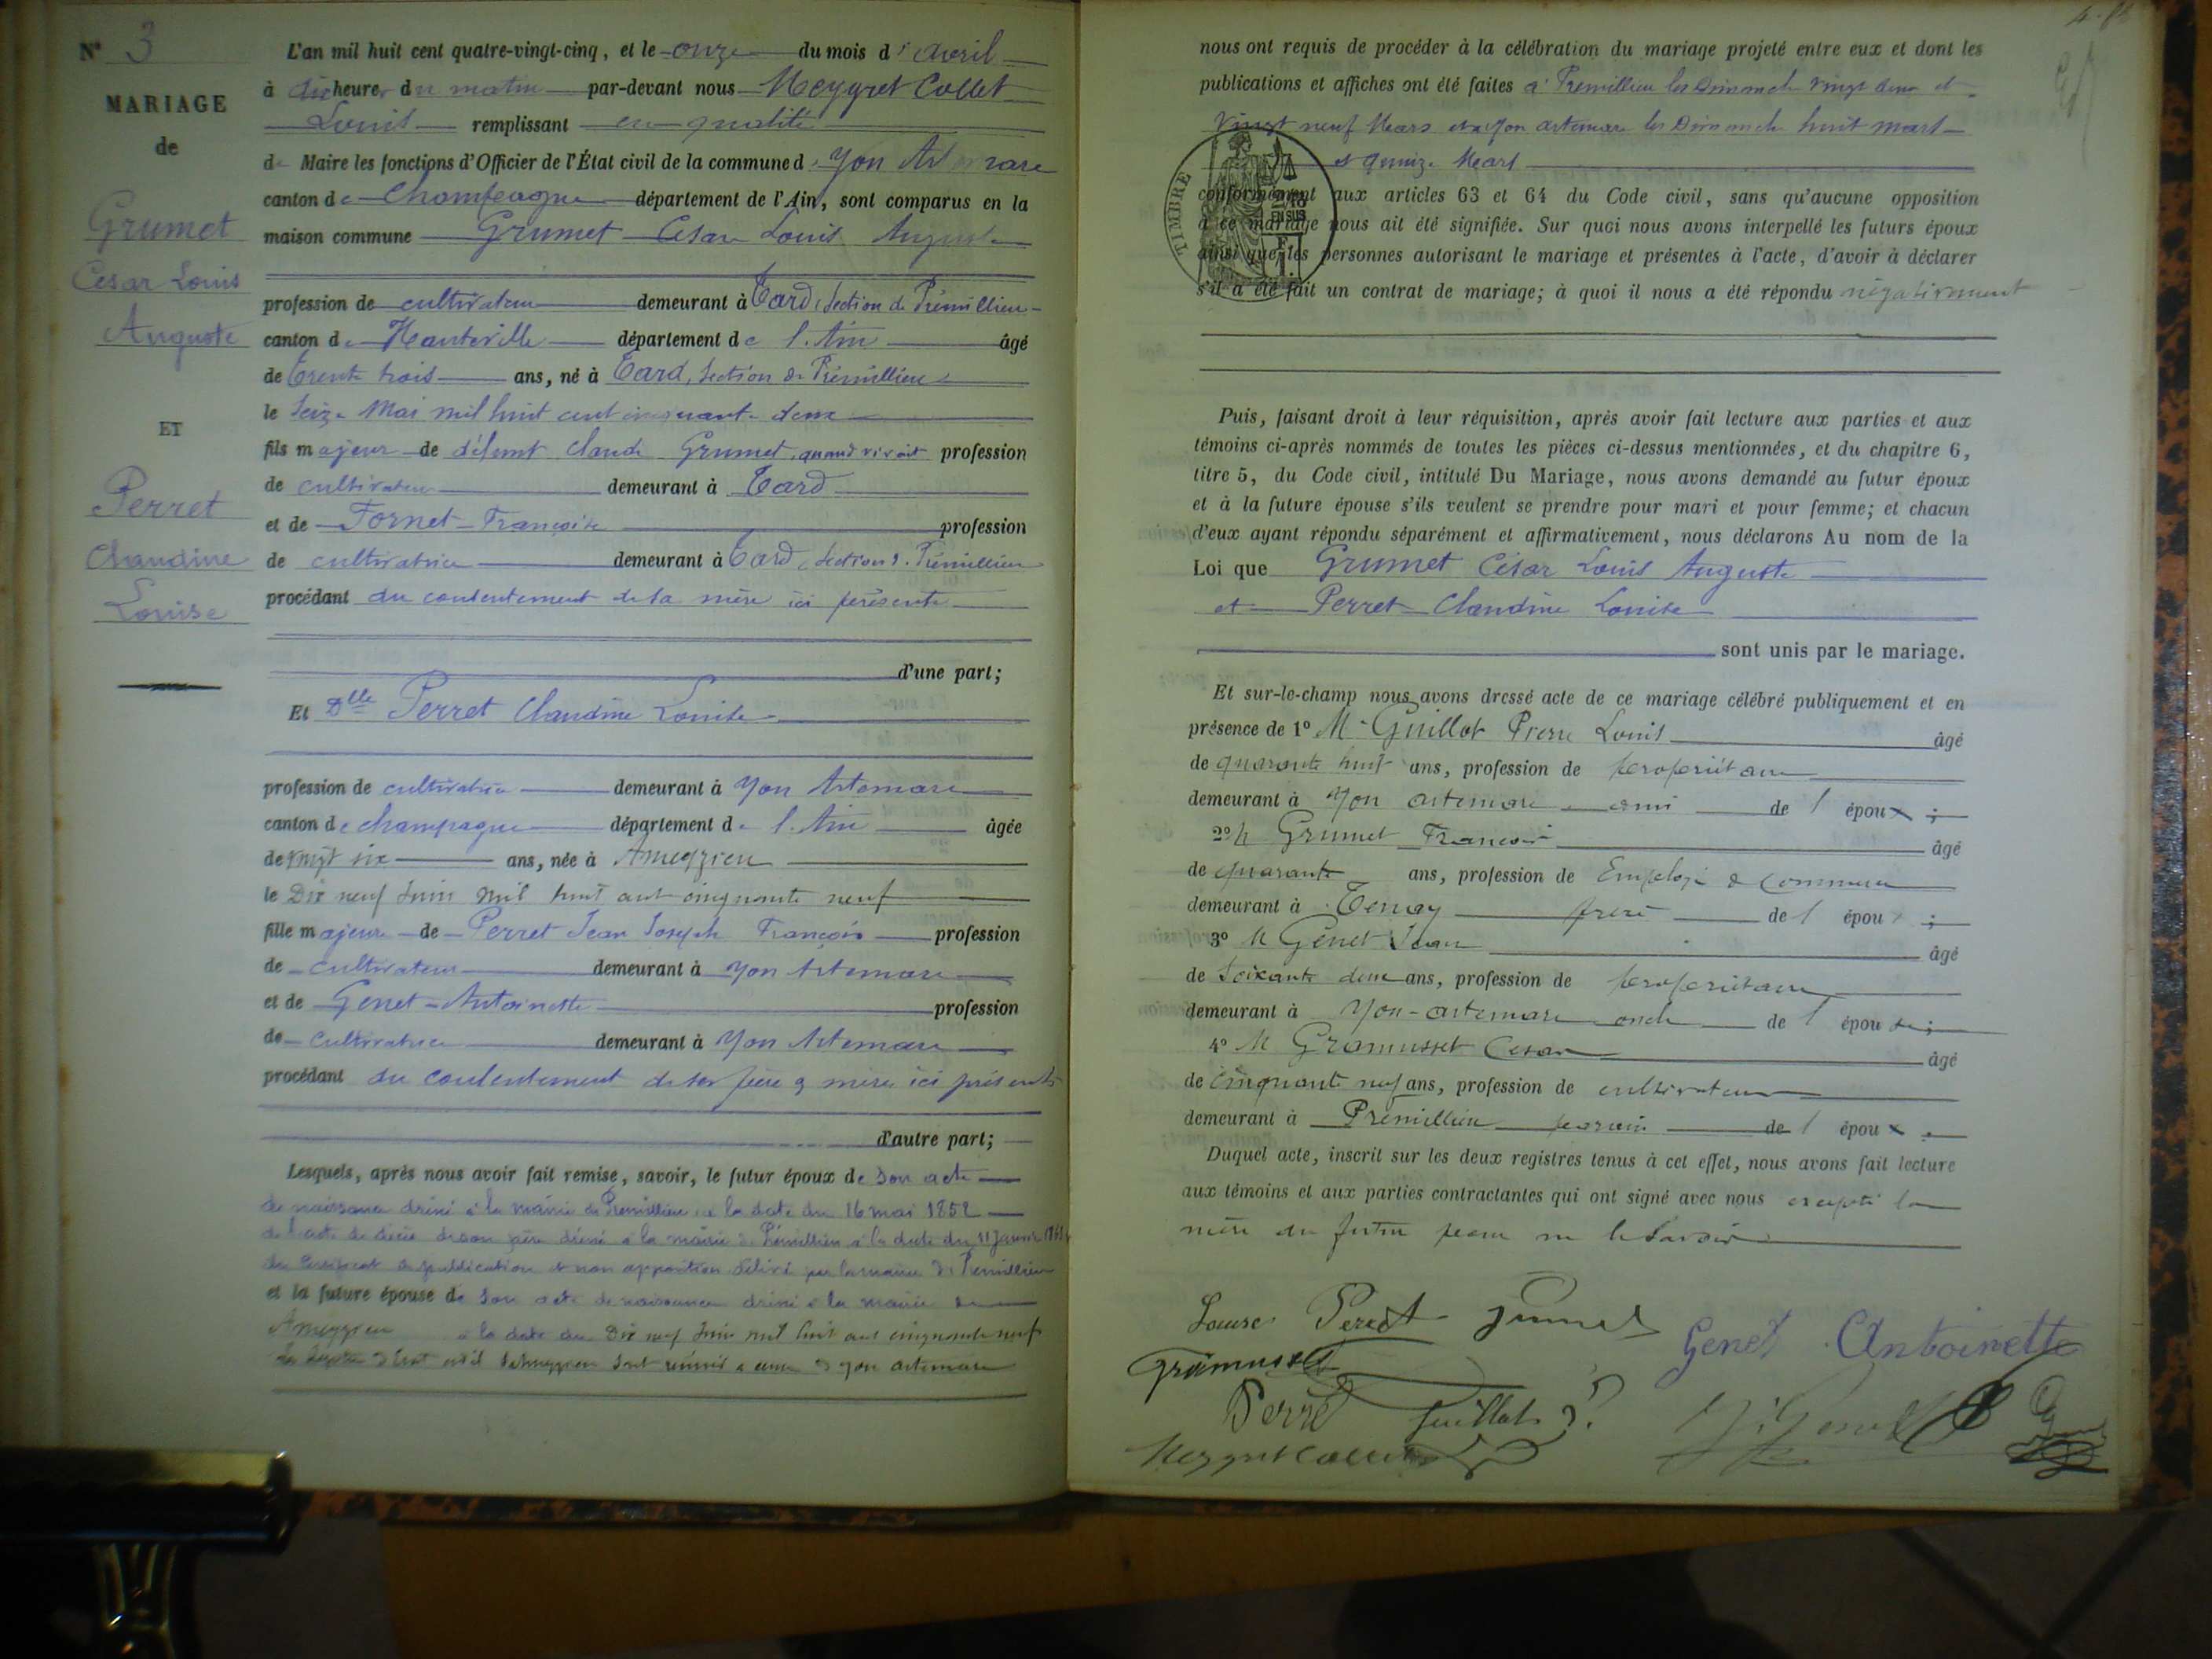 N° 3
MARIAGE
de
Grumet
Cesar Louis
Auguste
ET
Perret
Claudine
Louise
L'an mil huit cent quatre-vingt-cinq, et le onze du mois d'avril
à dix heures du matin par-devant nous Meygret Collet
Louis remplissant en qualité
de Maire les fonctions d'Officier de l'État civil de la commune d'Yon Artemare
canton de Champagne département de l'Ain, sont comparus en la
maison commune Grumet Cesar Louis Auguste
profession de cultivateur demeurant à Tard, Section de Prémillieu
canton de Hauteville département de l'Ain âgé
de trente trois ans, né à Tard, Section de Prémillieu
le seize Mai mil huit cent cinquante deux
fils majeur de défunt Claude Grumet, quand vivait profession
de cultivateur demeurant à Tard
et de Tornet Françoise profession
de cultivatrice demeurant à Tard, section de Prémillieu
procédant du consentement de sa mère ici présente
d'une part;
Et Dlle Perret Claudine Louise
profession de cultivatrice demeurant à Yon Artemare
canton de champagne département de l'Ain âgée
de vingt six ans, née à Ameyzieu
le Dix neuf Juin mil huit cent cinquante neuf
fille majeure de Perret Jean Joseph François profession
de cultivateur demeurant à Yon Artemare
et de Genet Antoinette profession
de cultivatrice demeurant à Yon Artemare
procédant du consentement de ses père & mère ici présents
d'autre part;
Lesquels, après nous avoir fait remise, savoir, le futur époux de son acte
de naissance délivré à la mairie de Prémillieu à la date du 16 mai 1852
de l'acte de décès de son père délivré à la mairie de Prémillieu à la date du 11 Janvier
du certificat de publication et non opposition délivré par la mairie de Prémillieu
et la future épouse de son acte de naissance délivré à la mairie de
Ameyzieu à la date du Dix neuf Juin mil huit cent cinquante neuf
d'Etat civil d'Ameyzieu sont réunis à ceux d'Yon artemare
nous ont requis de procéder à la célébration du mariage projeté entre eux et dont les
publications et affiches ont été faites à Prémillieu les Dimanche vingt deux et
vingt neuf Mars et à Yon artemare les Dimanche huit mars
et quinze Mars
TIMBRE
conformément aux articles 63 et 64 du Code civil, sans qu'aucune opposition
à ce mariage nous ait été signifiée. Sur quoi nous avons interpellé les futurs époux
ainsi que les personnes autorisant le mariage et présentes à l'acte, d'avoir à déclarer
s'il a été fait un contrat de mariage; à quoi il nous a été répondu négativement
Puis, faisant droit à leur réquisition, après avoir fait lecture aux parties et aux
témoins ci-après nommés de toutes les pièces ci-dessus mentionnées, et du chapitre 6,
titre 5, du Code civil, intitulé Du Mariage, nous avons demandé au futur époux
et à la future épouse s'ils veulent se prendre pour mari et pour femme; et chacun
d'eux ayant répondu séparément et affirmativement, nous déclarons Au nom de la
Loi que Grumet César Louis Auguste
et Perret Claudine Louise
sont unis par le mariage.
Et sur-le-champ nous avons dressé acte de ce mariage célébré publiquement et en
présence de 1° M Guillot Pierre Louis âgé
de quarante huit ans, profession de propriétaire
demeurant à Yon artemare ami de l'époux;
2° M Grumet François âgé
de quarante ans, profession de Employé de commerce
demeurant à Tenay frère de l'époux;
3° M Génet Jean âgé
de soixante deux ans, profession de propriétaire
demeurant à Yon-artemare oncle de l'épouse;
4° M Gramusset Cesar âgé
de cinquante neuf ans, profession de cultivateur
demeurant à Prémillieu parrain de l'époux.
Duquel acte, inscrit sur les deux registres tenus à cet effet, nous avons fait lecture
aux témoins et aux parties contractantes qui ont signé avec nous excepté la
mère du futur pour ne le savoir
Louise Perret Grumet Genet Antoinette
Gramusset
Perret Guillot
Meygret Collet